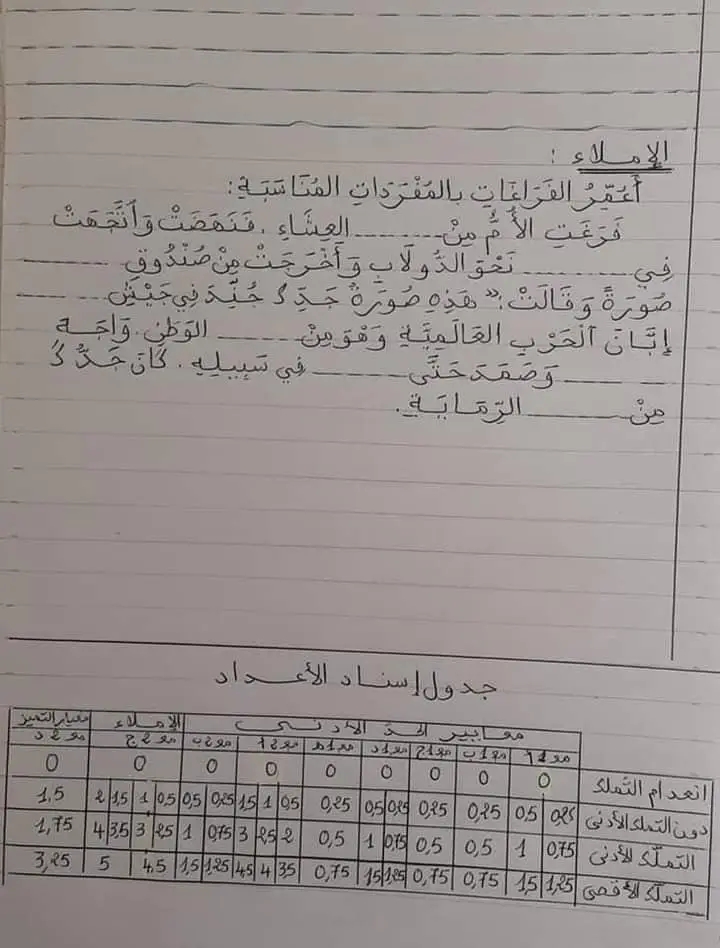 الإمــلاء :
أُعَمِّرُ الفَرَاغَاتِ بِالمُفْرَدَاتِ المُنَاسَبَةِ:
فَرَغَتِ الأُمُّ مِنْ ........ العِشَاءِ . فَنَهَضَتْ وَٱتَّجَهَتْ
فِي ........ نَحْوَ الدُّولَابِ وَأَخْرَجَتْ مِنْ صُنْدُوقٍ ........
صُورَةً وَقَالَتْ : « هَذِهِ صُورَةُ جَدِّكَ جُنِّدَ فِي جَيْشِ ........
إِبَّانَ ٱلْحَرْبِ العَالَمِيَّةِ وَهْوَ مِنْ ........ الوَطَنِ . وَاجَهَ
........ وَصَمَدَ حَتَّى ........ فِي سَبِيلِهِ . كَانَ جَدُّكَ
مِنْ ........ الرِّمَايَةِ.
جدول إسناد الأعــداد
معايير الحدّ الأدنــى الإمــلاء معيار التميّز
مع1أ مع1ب مع1ج مع1د مع1ه مع2أ مع2ب مع2ج مع2د
انعدام التملك 0 0 0 0 0 0 0 0 0
دون التملك الأدنى 0,25 0,5 0,25 0,25 0,25 0,5 0,25 0,5 1 1,5 0,25 0,5 0,5 1 1,5 2 1,5
التملّك الأدنى 0,75 1 0,5 0,5 0,75 1 0,5 2 2,5 3 0,75 1 2,5 3 3,5 4 1,75
التملّك الأقصى 1,25 1,5 0,75 0,75 1,25 1,5 0,75 3,5 4 4,5 1,25 1,5 4,5 5 3,25